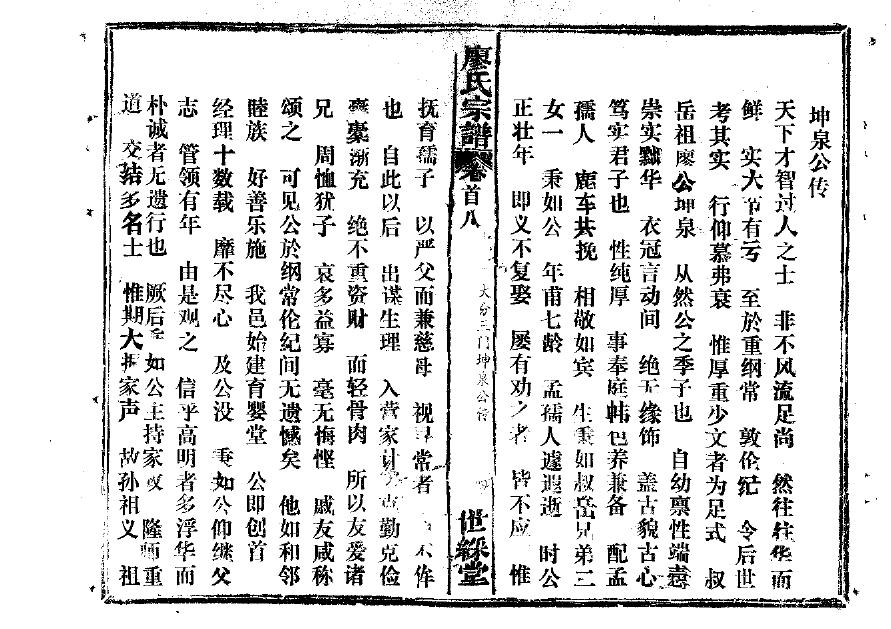 坤泉公传
天下才智过人之士 非不风流足尚 然往往华而
鲜 实大节有亏 至於重纲常 敦伦纪 令后世
考其实 行仰慕弗衰 惟厚重少文者为足式 叔
岳祖廖公坤泉 从然公之季子也 自幼禀性端悫
崇实黜华 衣冠言动间 绝无缘饰 盖古貌古心
笃实君子也 性纯厚 事奉庭帏色养兼备 配孟
孺人 鹿车共挽 相敬如宾 生秉如叔岳兄弟二
女一 秉如公 年甫七龄 孟孺人遽遐逝 时公
正壮年 即义不复娶 屡有劝之者 皆不应 惟
廖氏宗谱卷首八
大分三门坤泉公传
世綵堂
抚育孺子 以严父而兼慈母 视寻常者 不侔
也 自此以后 出谋生理 入营家计 克勤克俭
囊橐渐充 绝不重资财 而轻骨肉 所以友爱诸
兄 周恤犹子 裒多益寡 毫无悔悭 戚友咸称
颂之 可见公於纲常伦纪间无遗憾矣 他如和邻
睦族 好善乐施 我邑始建育婴堂 公即创首
经理十数载 靡不尽心 及公没 秉如公仰继父
志 管领有年 由是观之 信乎高明者多浮华而
朴诚者无遗行也 厥后秉如公主持家政 隆师重
道 交结多名士 惟期大振家声 故孙祖义 祖